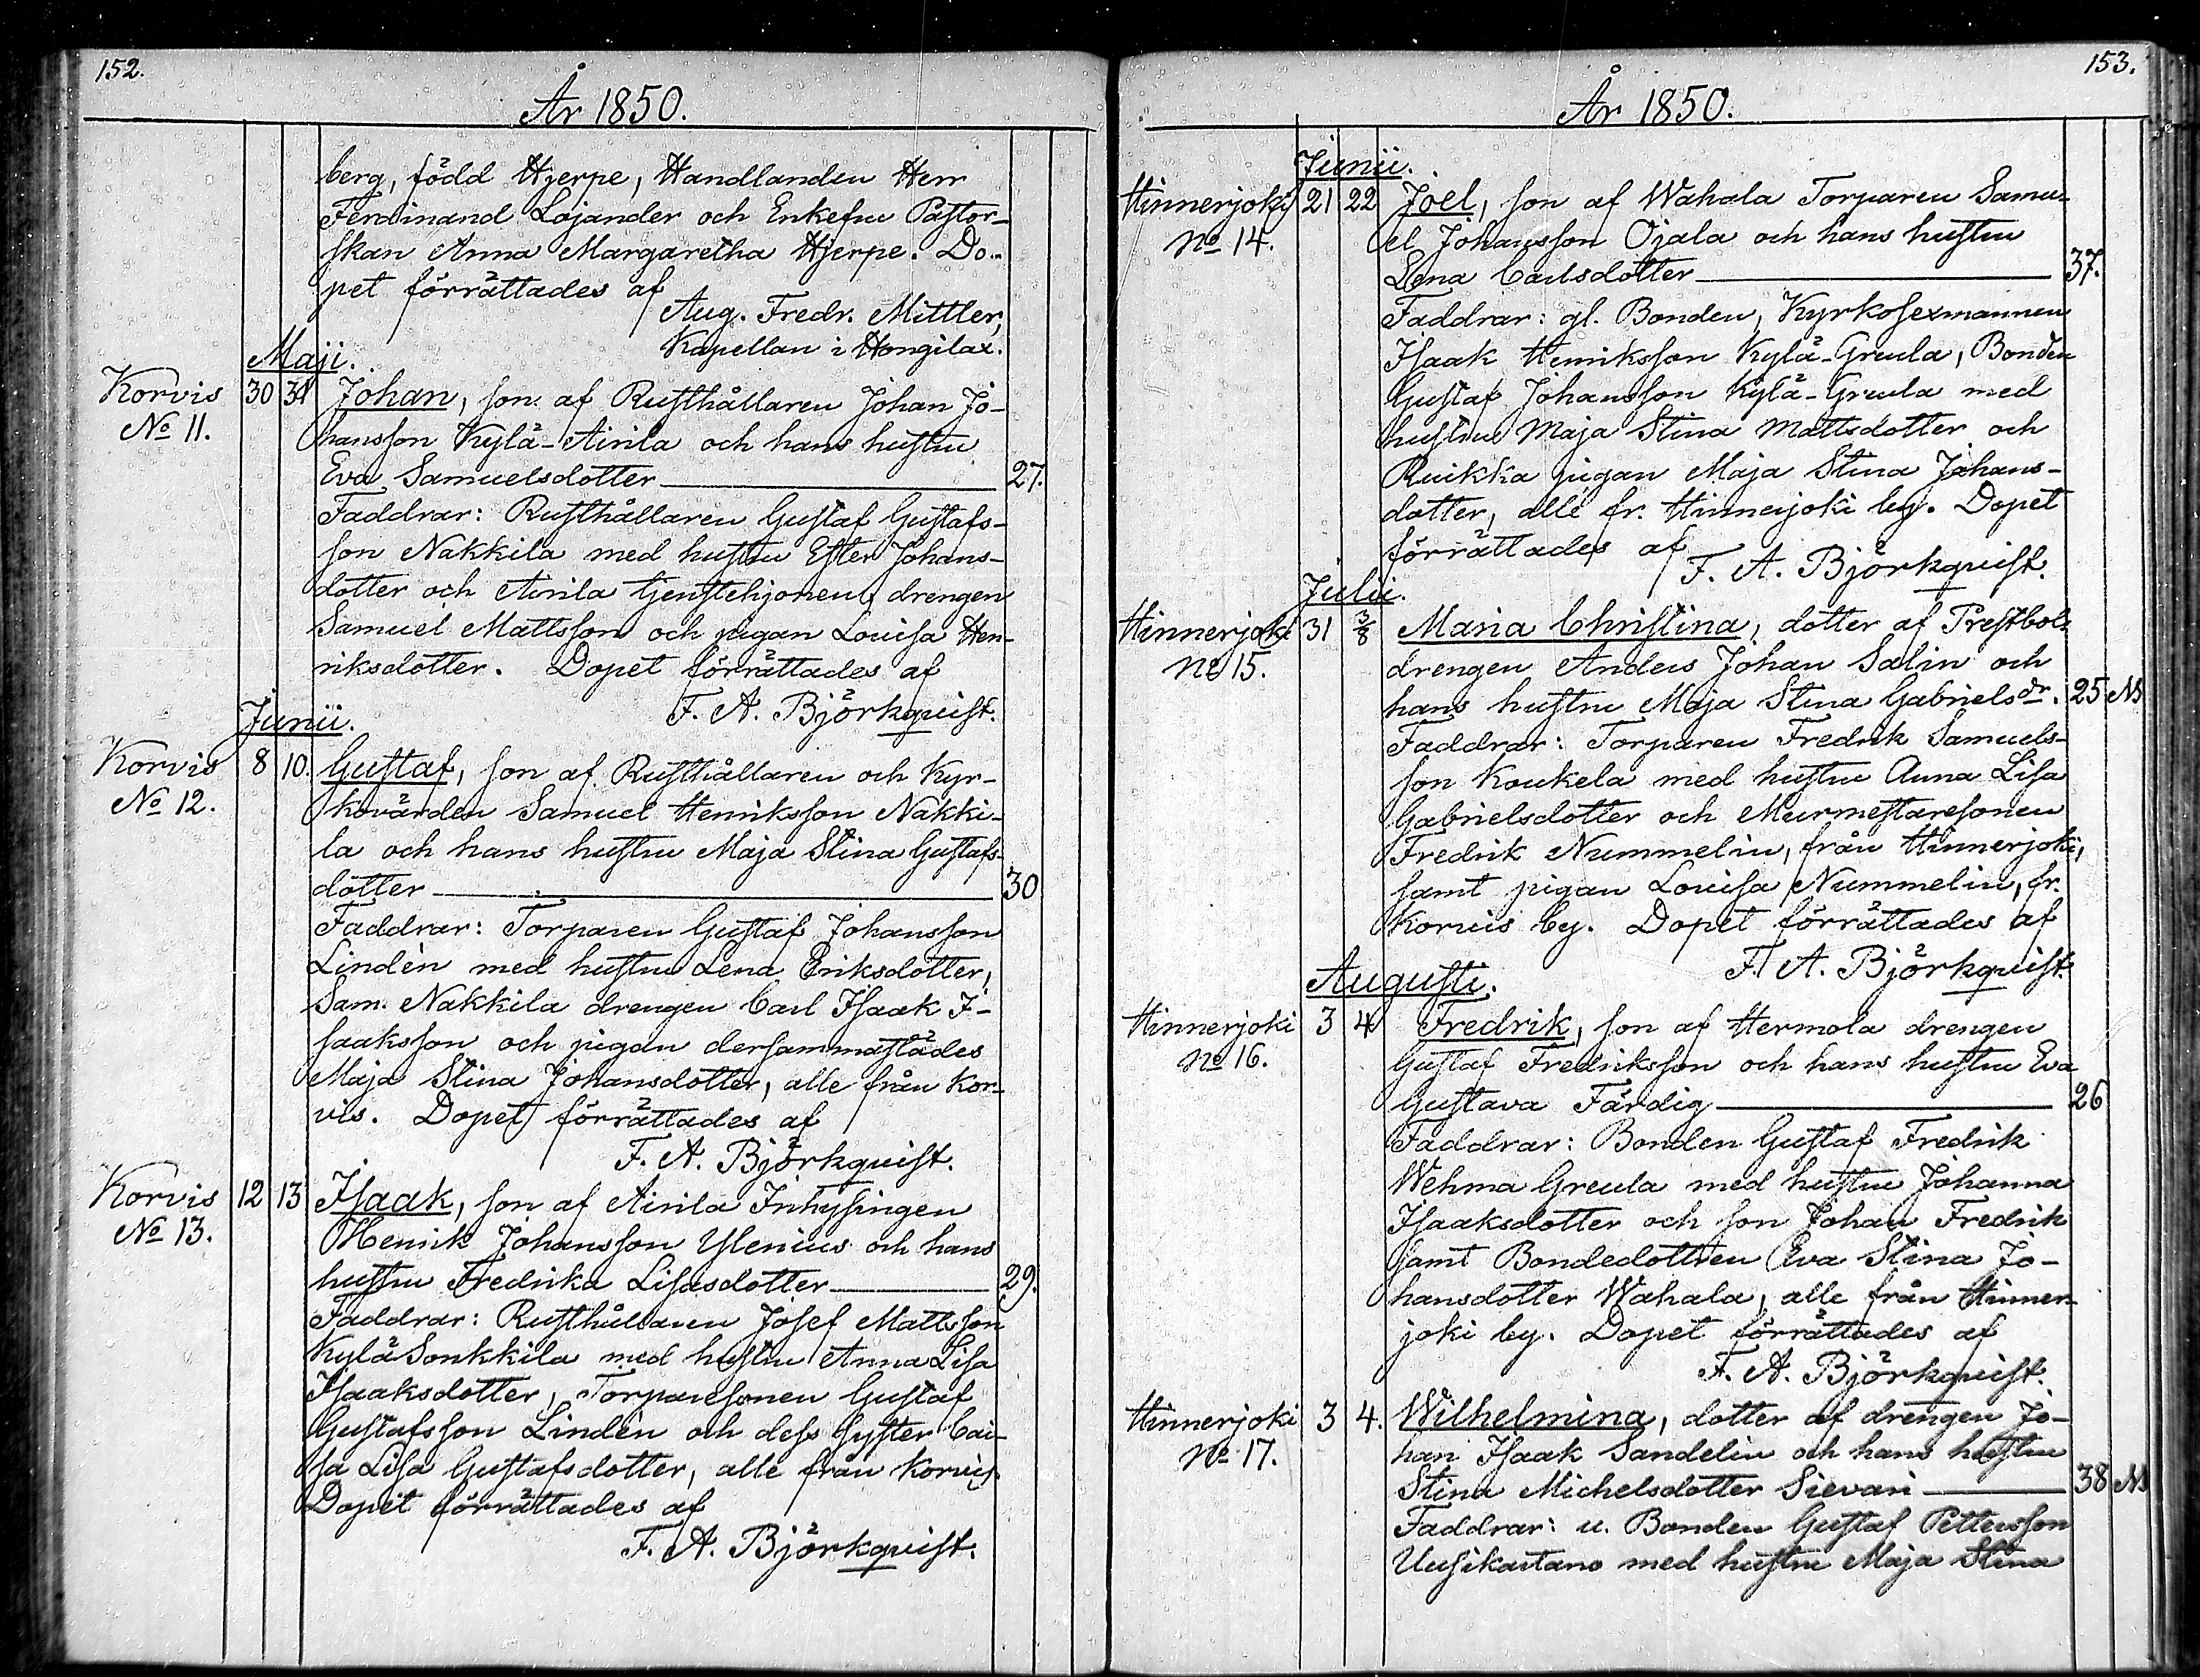 152.
År 1850.
berg, född Hjerpe, Handlanden Herr
Ferdinand Lojander och Enkefru Pastor-
skan Anna Margaretha Hjerpe. Do-
pet förrättades af
Aug. Fredr. Mittler,
Kapellan i Hongilax.
Maji.
Korvis 30 31 Johan, son af Rusthållaren Johan Jo-
No 11. hansson Kylä-Airila och hans hustru
Eva Samuelsdotter 27.
Faddrar: Rusthållaren Gustaf Gustafs-
son Nakkila med hustru Ester Johans-
dotter och Airila tjenstehjonen, drengen
Samuel Mattsson och pigan Lovisa Hen-
riksdotter. Dopet förrättades af
F. A. Björkqvist.
Junii.
Korvis 8 10. Gustaf, son af Rusthållaren och Kyr-
No 12. kovärden Samuel Henriksson Nakki-
la och hans hustru Maja Stina Gustafs-
dotter 30
Faddrar: Torparen Gustaf Johansson
Lindèn med hustru Lena Eriksdotter,
Sam. Nakkila drengen Carl Isaak I-
saaksson och pigan dersammastädes
Maja Stina Johansdotter, alle från Kor-
vis. Dopet förrättades af
F. A. Björkqvist.
Korvis 12 13 Isaak, son af Airila Inhysingen
No 13. Henrik Johansson Ylenius och hans
hustru Fredrika Lisasdotter 29.
Faddrar: Rusthållaren Josef Mattsson
Kylä Sonkkila med hustru Anna Lisa
Isaaksdotter, Torparesonen Gustaf
Gustafsson Lindèn och dess syster Cai-
sa Lisa Gustafsdotter, alle från Korvis.
Dopet förrättades af
F. A. Björkqvist.
153.
År 1850.
Junii.
Hinnerjoki 21 22 Joel, son af Wahala Torparen Samu-
No 14. el Johansson Ojala och hans hustru
Lena Carlsdotter 37.
Faddrar: gl. Bonden, Kyrkosexmannen
Isaak Henriksson Kylä-Greula, Bonden
Gustaf Johansson Kylä-Greula med
hustru Maja Stina Mattsdotter och
Ruikka pigan Maja Stina Johans-
dotter, alle fr. Hinnerjoki by. Dopet
förrättades af
F. A. Björkqvist.
Julii.
Hinnerjoki 31 3/8 Maria Christina, dotter af Prestbols
No 15. drengen Anders Johan Salin och
hans hustru Maja Stina Gabrielsdr. 25 M
Faddrar: Torparen Fredrik Samuels-
son Koukela med hustru Anna Lisa
Gabrielsdotter och Murmestaresonen
Fredrik Nummelin, från Hinnerjoki,
samt pigan Lovisa Nummelin, fr.
Korvis by. Dopet förrättades af
F. A. Björkqvist.
Augusti.
Hinnerjoki 3 4 Fredrik, son af Hermola drengen
No 16. Gustaf Fredriksson och hans hustru Eva
Gustava Färdig 26
Faddrar: Bonden Gustaf Fredrik
Wehma Greula med hustru Johanna
Isaaksdotter och son Johan Fredrik
samt Bondedottren Eva Stina Jo-
hansdotter Wahala, alle från Hinner-
joki by. Dopet förrättades af
F. A. Björkqvist.
Hinnerjoki 3 4. Wilhelmina, dotter af drengen Jo-
No 17. han Isaak Sandelin och hans hustru
Stina Michelsdotter Sievari 38 M
Faddrar: u. Bonden Gustaf Pettersson
Uusikartano med hustru Maja Stina